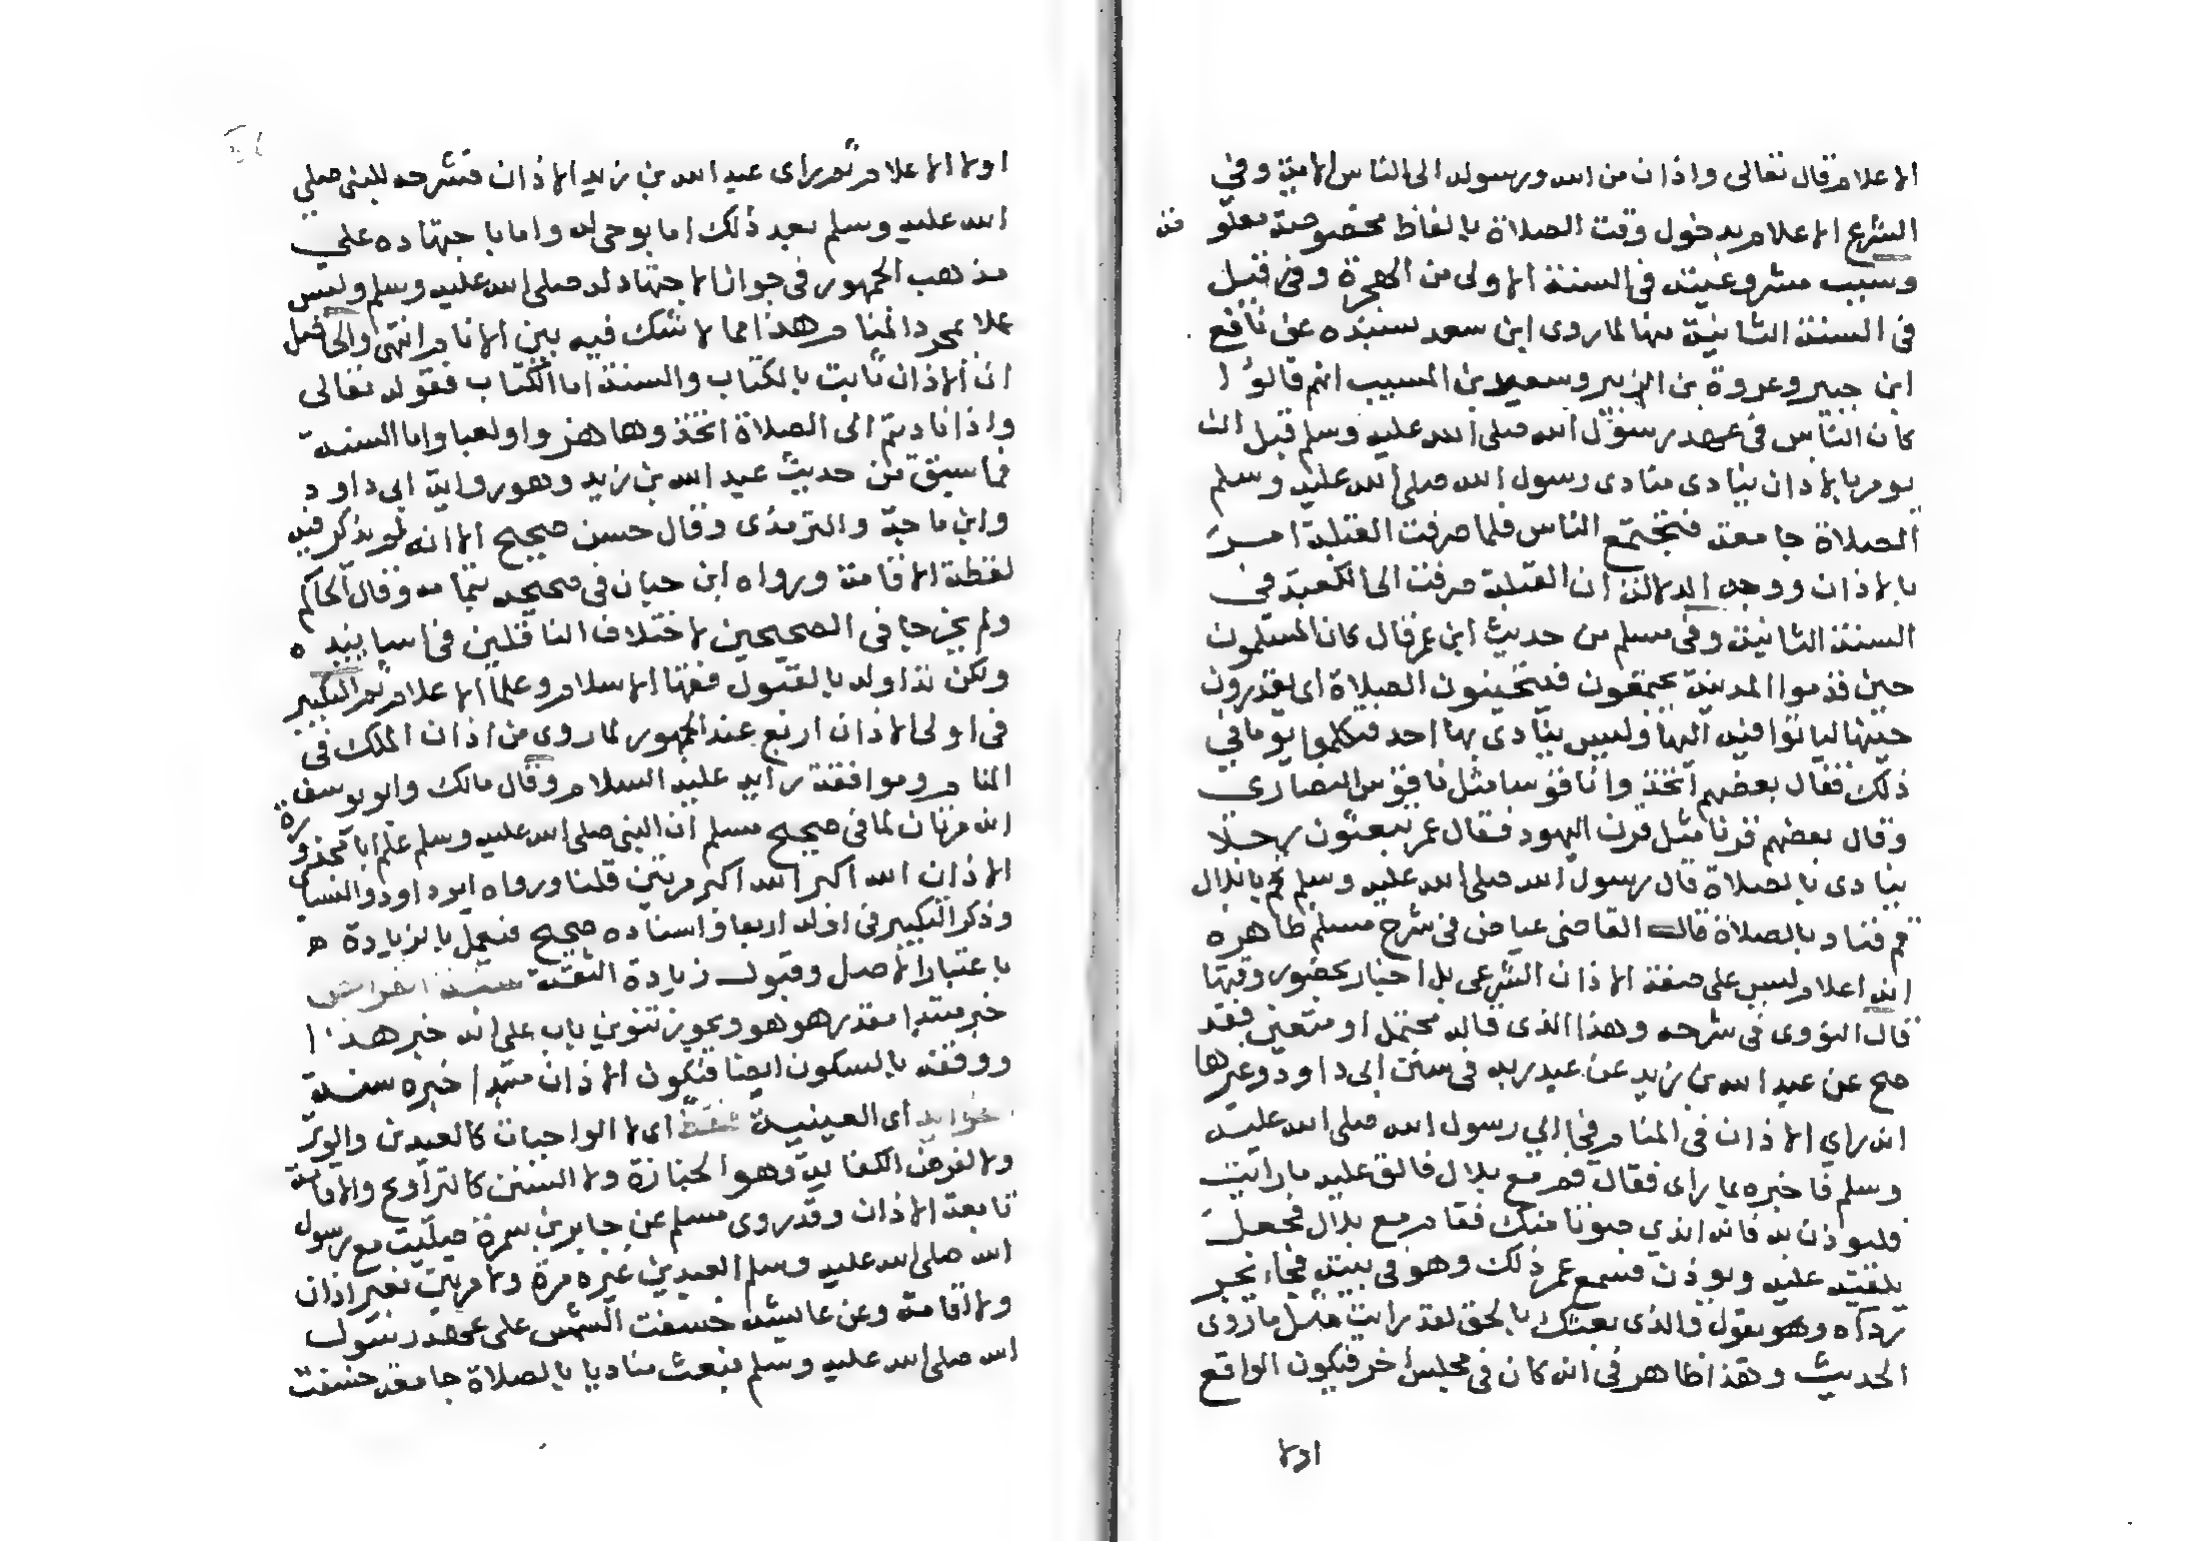 الاعلام قال تعالى واذان من الله ورسوله الى الناس الاية وفي
الشرع الاعلام بدخول وقت الصلاة بالفاظ مخصوصة معلو
وسبب مشروعيته في السنة الاولى من الهجرة وفي قيل
في السنة الثانية منها لما روى ابن سعد بسنده عن نافع
ابن جبير وعروة بن الزبير وسعيد بن المسيب انهم قالوا
كان الناس في عهد رسول الله صلى الله عليه وسلم قبل ان
يومر بالاذان ينادى منادى رسول الله صلى الله عليه وسلم
الصلاة جامعة فتجتمع الناس فلما صرفت القبلة امر
بالاذان ووجه الدلالة ان القبلة صرفت الى الكعبة في
السنة الثانية وفي مسلم من حديث ابن عمر قال كان المسلمون
حين قدموا المدينة يجتمعون فيتحينون الصلاة اى يقدرون
حينها لياتوا فيه اليها وليس ينادى بها احد فتكلموا يوما في
ذلك فقال بعضهم اتخذوا ناقوسا مثل ناقوس النصارى
وقال بعضهم قرنا مثل قرن اليهود فقال عمر تبعثون رجلا
ينادى بالصلاة قال رسول الله صلى الله عليه وسلم قم يا بلال
قم فناد بالصلاة قال القاضى عياض في شرح مسلم ظاهره
انه اعلام ليس على صفة الاذان الشرعى بل اخبار بحضور وقتها
قال النووى في شرحه وهذا الذى قاله محتمل او متعين فقد
صح عن عبد الله بن زيد عن عبد ربه في سنن ابى داود وغيرها
انه راى الاذان في المنام فجا الي رسول الله صلى الله عليه
وسلم فاخبره بما راى فقال قم مع بلال فالق عليه ما رايت
فليوذن به فانه اندى صوتا منك فقام مع بلال فجعل
يلقيه عليه ويوذن فسمع عمر ذلك وهو في بيته فجاء يجر
رداه وهو يقول والذى بعثك بالحق لقد رايت مثل ما روى
الحديث وهذا ظاهر في انه كان في مجلس اخر فيكون الواقع
اولا
اولا الاعلام ثم راى عبد الله بن زيد الاذان فشرحه للنبى صلي
الله عليه وسلم بعد ذلك اما بوحى له واما باجتهاده على
مذهب الجمهور في جواز الاجتهاد له صلى الله عليه وسلم وليس
عملا بمجرد المنام هذا مما لا شك فيه بين الانام انتهى والحاصل
ان الاذان ثابت بالكتاب والسنة اما الكتاب فقوله تعالى
واذا ناديتم الى الصلاة اتخذوها هزوا ولعبا واما السنة
فما سبق من حديث عبد الله بن زيد وهو رواية ابى داود
وابن ماجة والترمذى وقال حسن صحيح الا انه لم يذكر فيه
لفظة الاقامة ورواه ابن حبان في صحيحه بتمامه وقال الحاكم
ولم يخرجا في الصحيحين لاختلاف الناقلين في اسانيده
ولكن تداوله بالقبول فقها الاسلام وعلما الاعلام ثم التكبير
في اولى الاذان اربع عند الجمهور لما روى من اذان الملك في
المنام وموافقة رايه عليه السلام وقال مالك وابو يوسف
انه مرتان لما في صحيح مسلم ان النبى صلى الله عليه وسلم علم ابا محذورة
الاذان الله اكبر الله اكبر مرتين قلنا ورواه ابو داود والنساى
وذكر التكبير في اوله اربعا واسناده صحيح فيعمل بالزيادة
باعتبار الاصل وقبول زيادة الثقة سنة الفرايض
خبر مبتدا مقدر هو هو ويجوز تنوين باب على انه خبر هذا
ووقفه بالسكون ايضا فيكون الاذان مبتدا خبره سنة
اى العينية فقط اى لا الواجبات كالعيدين والوتر
ولا الفرض الكفاية وهو الجنازة ولا السنن كالتراويح والاقامة
تابعة الاذان وقد روى مسلم عن جابر بن سمرة صليت مع رسول
الله صلى الله عليه وسلم العيدين غير مرة ولا مرتين بغير اذان
ولا اقامة وعن عايشة خسفت الشمس على عهد رسول
الله صلى الله عليه وسلم فبعث مناديا بالصلاة جامعة خسفت